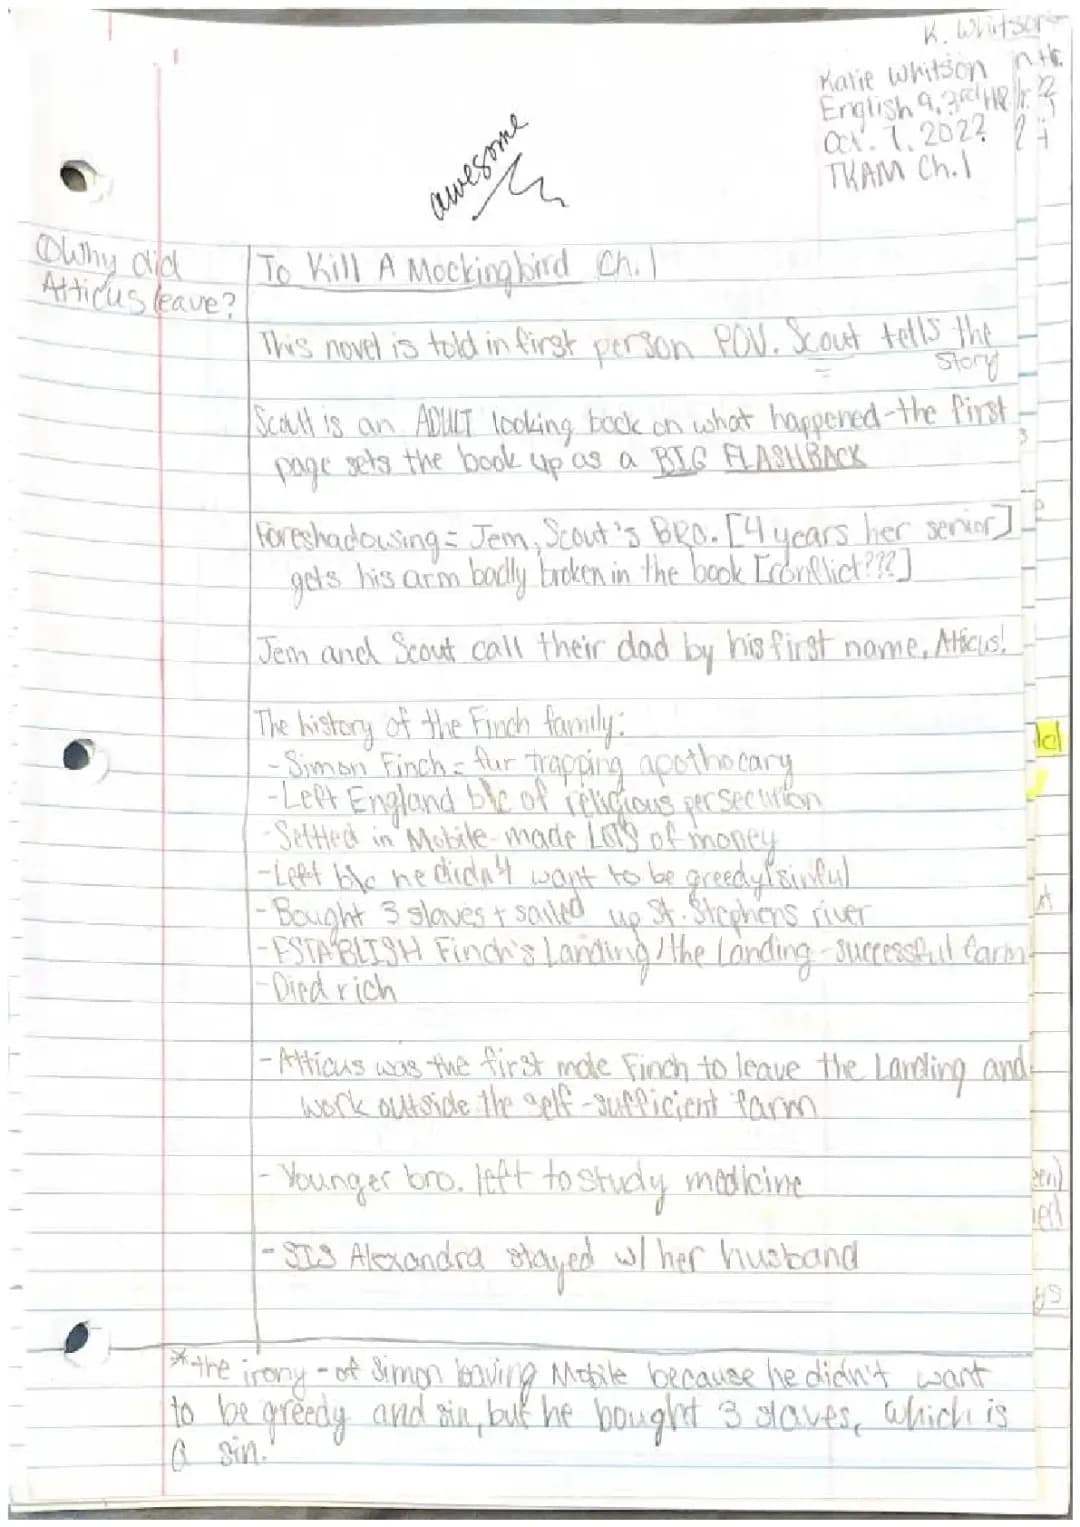 K. Whitson
Katie Whitson
English 9, 3rd HR
Oct. 7, 2022
TKAM Ch. 1
awesome
① Why did
Atticus leave?
To Kill A Mockingbird Ch. 1
This novel is told in first person POV. Scout tells the
story
Scout is an ADULT looking back on what happened - the first
page sets the book up as a BIG FLASHBACK
Foreshadowing = Jem, Scout's BRO. [4 years her senior]
gets his arm badly broken in the book [conflict???]
Jem and Scout call their dad by his first name, Atticus!
The history of the Finch family:
- Simon Finch = fur trapping apothocary
- Left England b/c of religious persecution
- Settled in Mobile - made LOTS of money
- Left b/c he didn't want to be greedy/sinful
- Bought 3 slaves + sailed up St. Stephens river
- ESTABLISH Finch's Landing / the Landing - successful farm
- Died rich
- Atticus was the first male Finch to leave the Landing and
work outside the self-sufficient farm
- Younger bro. left to study medicine
- SIS Alexandra stayed w/ her husband
* the irony - of Simon leaving Mobile because he didn't want
to be greedy and sin, but he bought 3 slaves, which is
a sin.